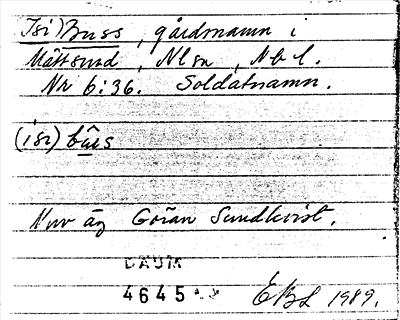 Isi) Buss, gårdmamn i
Måttsund, Nlsn, Nbl.
Nr 6:36. Soldatnamn.
(isi) bu̯s
Nuv äg Göran Sundkvist.
DAUM
4645
EBL 1989.